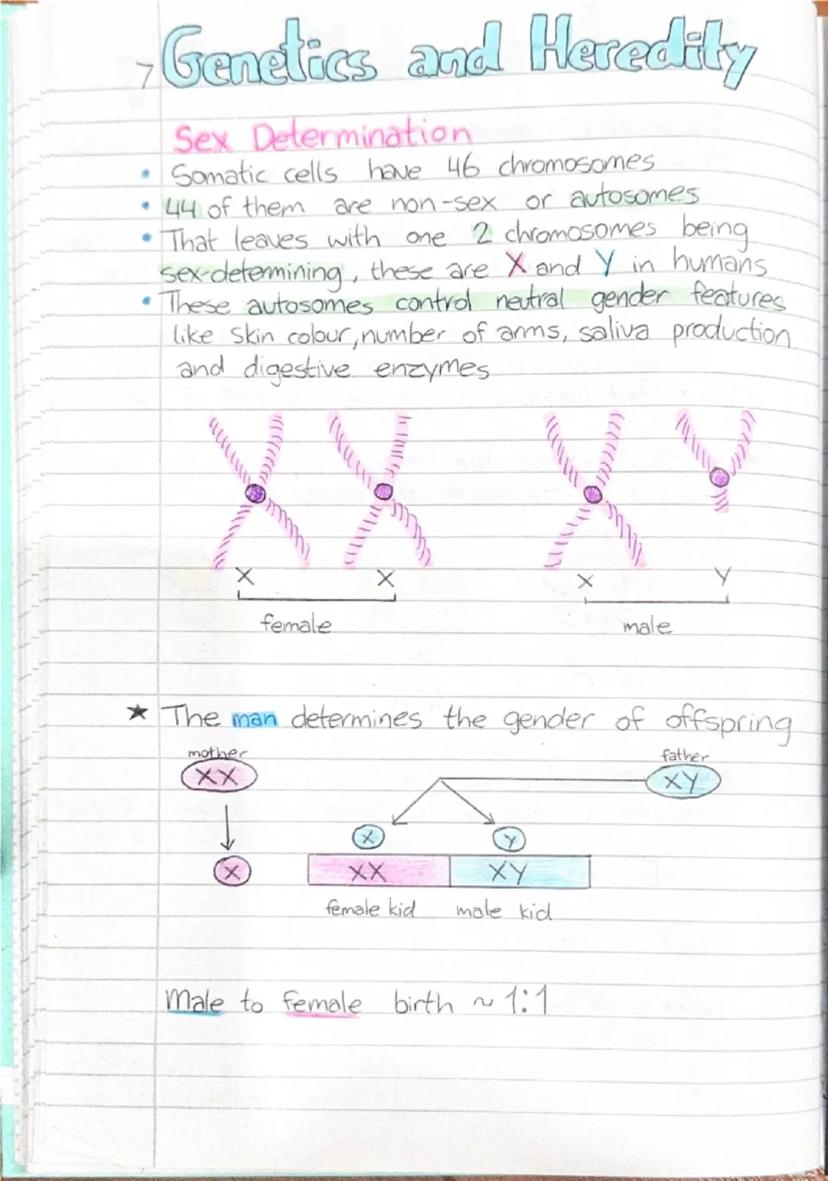 7 Genetics and Heredity
Sex Determination
• Somatic cells have 46 chromosomes
• 44 of them are non-sex or autosomes
• That leaves with one 2 chromosomes being
sex-determining, these are X and Y in humans
• These autosomes control neutral gender features
like skin colour, number of arms, saliva production
and digestive enzymes
X X X Y
female male
★ The man determines the gender of offspring
mother father
XX XY
X Y
X XX XY
female kid male kid
Male to female birth ~ 1:1